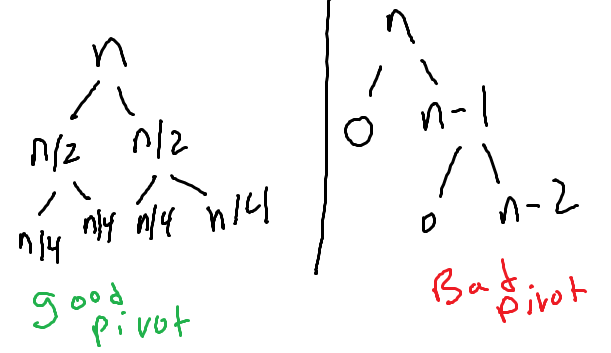 n
n/2 n/2
n/4 n/4 n/4 n/4
good
pivot
n
0 n-1
0 n-2
Bad
pivot